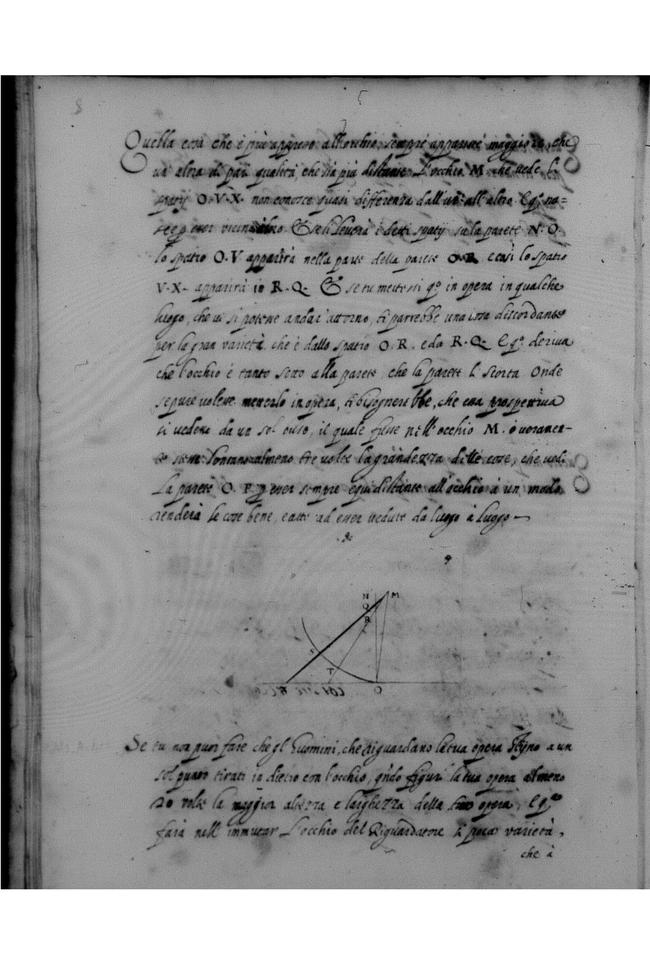 8
5
Quella cosa che è più appresso all'occhio sempre apparirà maggiore, che
un altra di pari qualità che sia più distante. L'occhio M. che vede l.
spatij O.V.X. non conosce quasi differenza dall'un' all'altro E qo. na-
sce p esser vicino Et se li leverà i detti spatij su la parete N.O.
lo spatio O.V apparirà nella parte della parete O.R. e così lo spatio
V.X. apparirà in R.Q. Et se tu mettessi qo in opera in qualche
luogo, che vi si potesse andar' attorno, ti parrebbe una cosa discordante
per la gran varietà, che è dallo spatio O.R. e da R.Q. E qo. deriva
che l'occhio è tanto sotto alla parete, che la parete l. scorta Onde
se pure volessi metterlo in opera, ti bisognerebbe, che essa prospettiva
si vedesse da un sol buso, il quale fusse nell'occhio M. o veramen-
te lontano almeno tre volte la grandezza delle cose, che vedi
La parete O.P. p esser sempre equidistante all'occhio à un modo
renderà le cose bene, e atte ad esser vedute da luogo à luogo
N M
Q
R
S
T
O
Se tu non puoi fare che gl' huomini, che riguardano la tua opera stiano a un
sol punto tirati in dietro con l'occhio, qndo figuri la tua opera almeno
20 volte la maggior altezza e larghezza della tua opera, E qo.
farà nell' immutar L'occhio del Riguardatore sì poca varietà,
che à